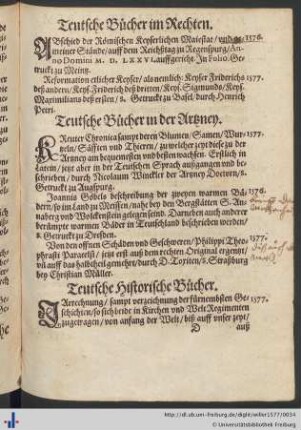 Teutsche Bücher im Rechten.
Abschied der Römischen Keyserlichen Maiestat / vnd ge- 1576.
meiner Stände / auff dem Reichßtag zu Regenspurg / An-
no Domini M. D. LXXVI. auffgericht. In Folio. Ge-
truckt zu Meintz.
Reformation etlicher Keyser / als nemlich: Keyser Friderichs 1577.
deß andern / Keys. Friderich deß dritten / Keys. Sigmunds / Keys.
Maximilians deß ersten / 8. Getruckt zu Basel / durch Henrich
Petri.
Teutsche Bücher in der Artzney.
Kreuter Chronica sampt deren Blumen / Samen / Wur- 1577.
tzeln / Säfften vnd Thieren / zu welcher zeyt diese zu der
Artzney am bequemesten vnd besten wachsen. Erstlich in
Latein / jetzt aber in der Teutschen Sprach außgangen vnd be-
schrieben / durch Nicolaum Winckler der Artzney Doctorn / 8.
Getruckt zu Augspurg.
Joannis Göbels beschreibung der zweyen warmen Bä- 1576.
dern / so im Land zu Meissen / nahe bey den Bergstätten S. An-
naberg vnd Wolckenstein gelegen seind. Darneben auch anderer
berümpter warmen Bäder in Teutschland beschrieben werden /
8. Getruckt zu Dreßden.
Von den offnen Schäden vnd Geschweren / Philippi Theo- 1577.
phrasti Paracelsi / jetzt erst auß dem rechten Original ergentzt /
vñ auff das halbtheil gemehrt / durch D. Toxiten / 8. Straßburg
bey Christian Müller.
Teutsche Historische Bücher.
Jarrechnung / sampt verzeichnung der fürnembsten Ge- 1577.
schichten / so sich beide in Kirchen vnd Welt Regimenten
zugetragen / von anfang der Welt / biß auff vnser zeyt /
D auß
http://dl.ub.uni-freiburg.de/diglit/willer1577/0034
© Universitätsbibliothek Freiburg